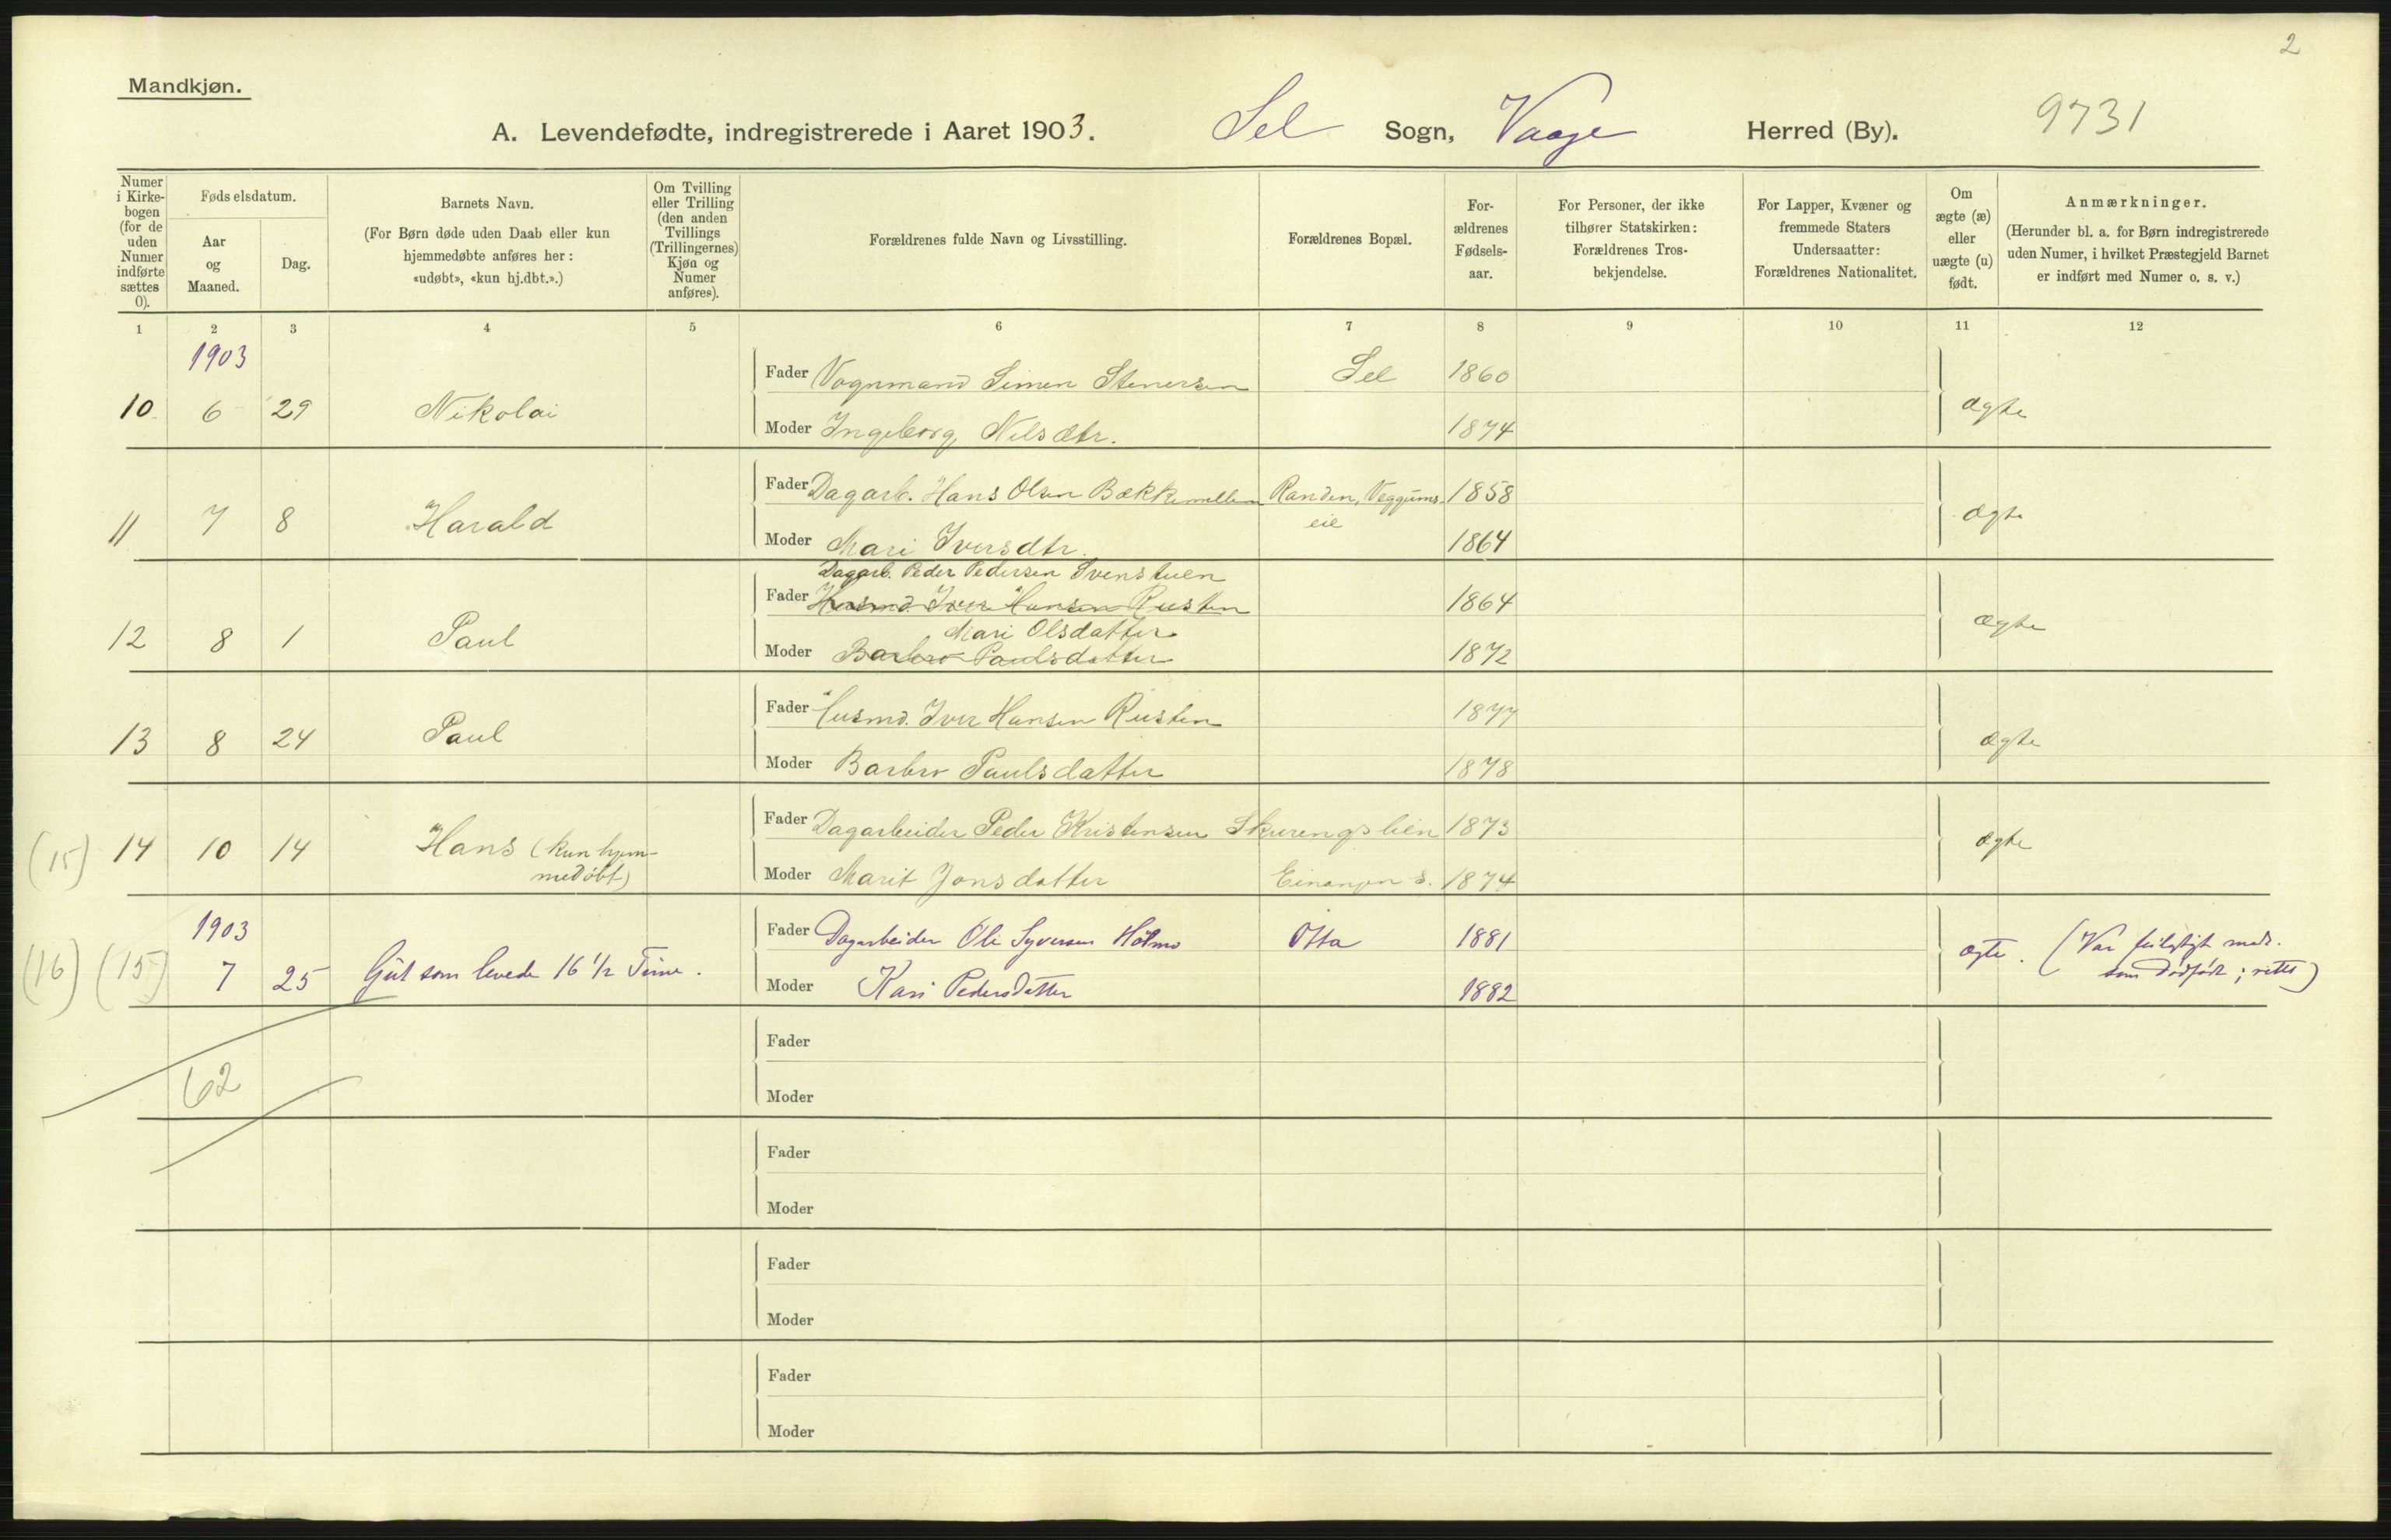 2
Mandkjøn.
A. Levendefødte, indregistrerede i Aaret 1903. Sel Sogn, Vaage Herred (By). 9731
Numer i Kirkebogen (for de uden Numer indførte sættes 0).
Fødselsdatum.
Aar og Maaned.
Dag.
Barnets Navn.
(For Børn døde uden Daab eller kun hjemmedøbte anføres her: «udøbt», «kun hj.dbt.».)
Om Tvilling eller Trilling (den anden Tvillings (Trillingernes) Kjøn og Numer anføres).
Forældrenes fulde Navn og Livsstilling.
Forældrenes Bopæl.
Forældrenes Fødselsaar.
For Personer, der ikke tilhører Statskirken: Forældrenes Trosbekjendelse.
For Lapper, Kvæner og fremmede Staters Undersaatter: Forældrenes Nationalitet.
Om ægte (æ) eller uægte (u) født.
Anmærkninger.
(Herunder bl. a. for Børn indregistrerede uden Numer, i hvilket Præstegjeld Barnet er indført med Numer o. s. v.)
1 2 3 4 5 6 7 8 9 10 11 12
1903
Fader Vognmand Simen Stenersen Sel 1860
10 6 29 Nikolai ægte
Moder Ingeborg Nilsdtr. 1874
Fader Dagarb. Hans Olsen Bækkemellem Randen, Veggums 1858
eie
11 7 8 Harald ægte
Moder Mari Iversdtr. 1864
Dagarb. Peder Pedersen Svenstuen
Fader Husmd. Iver Hansen Rusten 1864
12 8 1 Paul ægte
Mari Olsdatter
Moder Barbro Paulsdatter 1872
Fader Husmd. Iver Hansen Rusten 1877
13 8 24 Paul ægte
Moder Barbro Paulsdatter 1878
Fader Dagarbeider Peder Kristensen Skurengslien 1873
(15) 14 10 14 Hans (kun hjem-
medøbt) ægte
Moder Marit Jonsdatter 1874
1903
Fader Dagarbeider Ole Syversen Holmo Otta 1881
(16) (15) 7 25 Gut som levede 16 1/2 Time. ægte. (Var feilagtigt medd.
som dødfødt; rettet)
Moder Kari Pedersdatter 1882
Fader
62
Moder
Fader
Moder
Fader
Moder
Fader
Moder